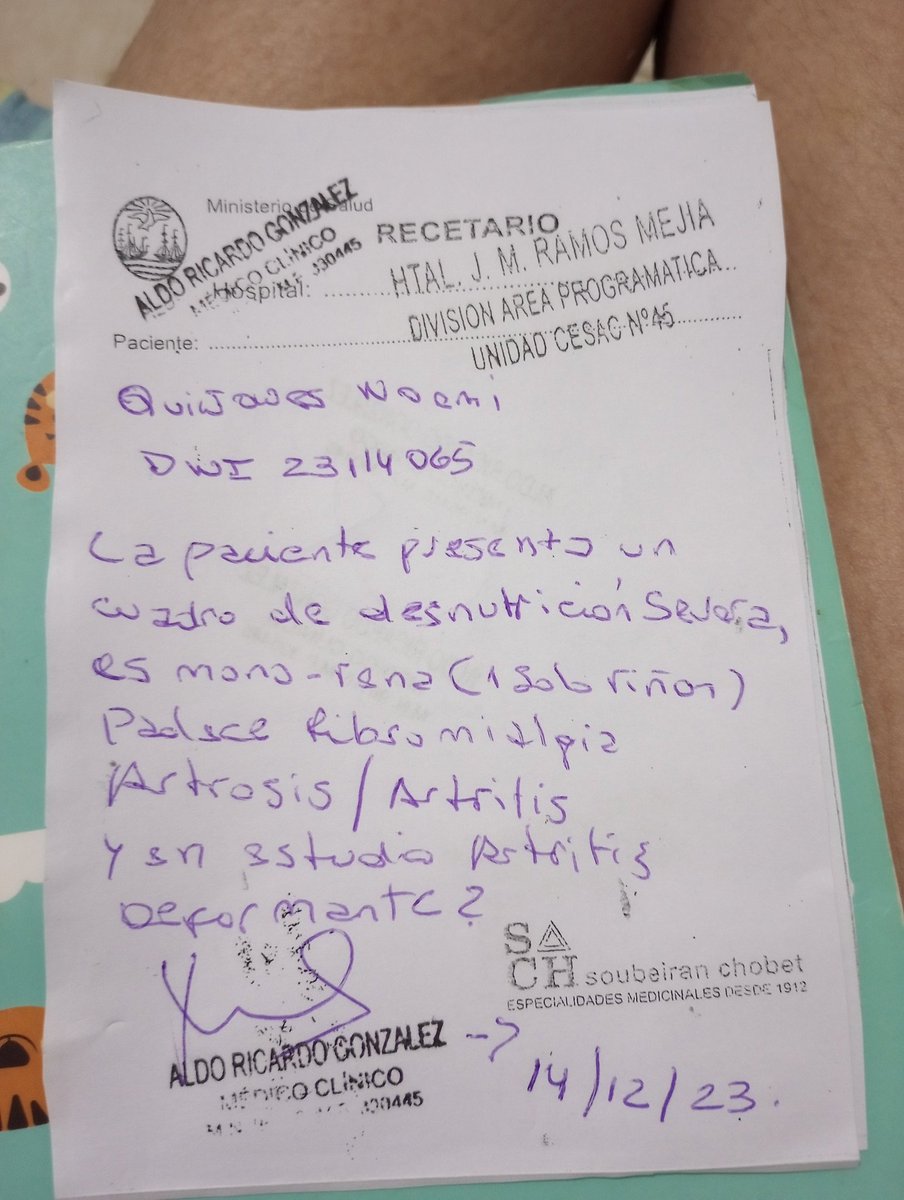 Ministerio de Salud
RECETARIO
ALDO RICARDO GONZALEZ
MÉDICO CLÍNICO
Hospital:
HTAL. J. M. RAMOS MEJIA
DIVISION AREA PROGRAMATICA
UNIDAD CESAC Nº45
Paciente:
Quiñones Noemi
DNI 23114065
La paciente presenta un
cuadro de desnutrición Severa,
es mono-rena (1 solo riñon)
Padece Fibromialgia
Artrosis/Artritis
Y en estudio Artritis
Deformante?
SACH soubeiran chobet
ESPECIALIDADES MEDICINALES DESDE 1912
ALDO RICARDO GONZALEZ
MÉDICO CLÍNICO
14/12/23.